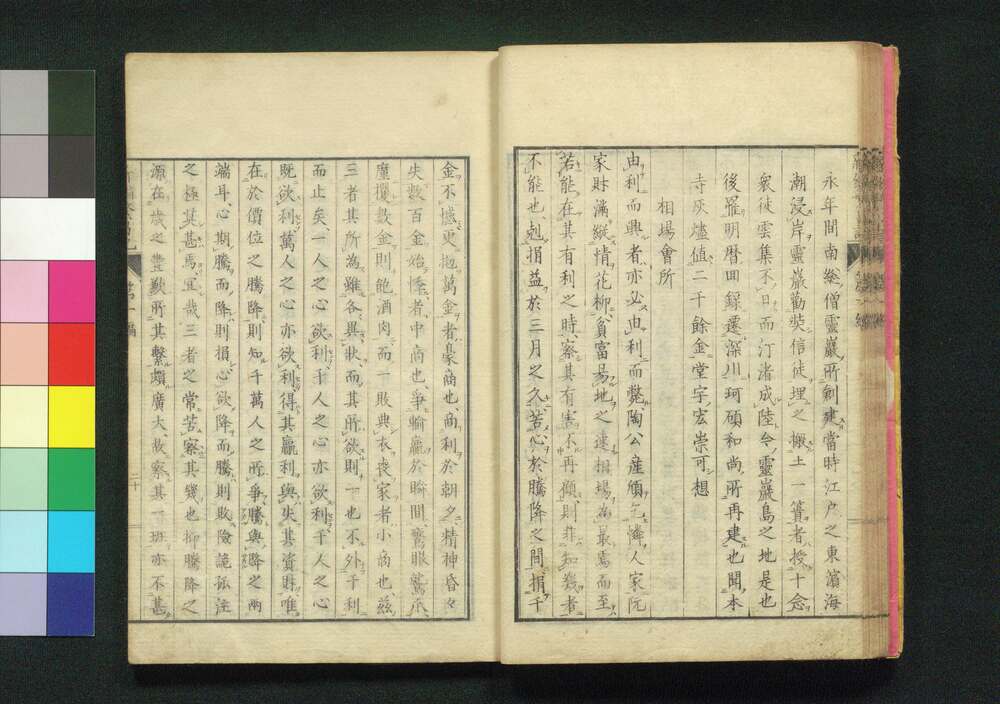 永年間南紀僧靈巖所創建當時江戸之東濵海
潮浸岸靈巖勸奘信徒埋之搬土一簣者授十念
衆徒雲集不日而汀渚成陸今靈巖島之地是也
後罹明暦回録遷深川珂碩和尚所再建也聞本
寺灰燼値二千餘金堂宇宏崇可想
相場會所
由利而興者亦必由利而斃陶公産頒乞憐人家阮
家財満縱情花柳貧富易地之速相場為最焉而至
若能在其有利之時察其有害不再顧則非知幾者
不能也剋捐益於三月之久苦心於騰降之間捐千
金不憾更抱萬金者豪商也商利於朝夕精神昏々
失数百金始悸者中商也爭輸贏於瞬間鷹眼鷲爪
壟攫数金則飽酒肉而一敗典衣喪家者小商也茲
三者其所為雖各異狀而其所欲則一也不外于利
而止矣一人之心欲利千人之心亦欲利千人之心
既欲利萬人之心亦欲利得其贏利與失其資財唯
在於價位之騰降則知千萬人之所爭騰與降之兩
端耳心期騰而降則損心欲降而騰則敗險詭孤注
之極其甚焉宜哉三者之常苦察其幾也抑騰降之
源在歳之豊歉所其繫頗廣大故察其一斑亦不甚
第一編
二十